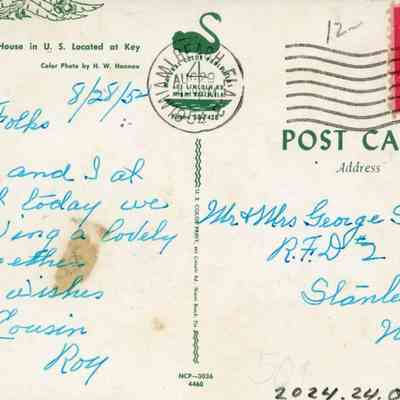 House in U. S. Located at Key
Color Photo by H. W. Hannau
8/28/52
Folks
and I at
today we
a lovely
wishes
Cousin
Roy
MIAMI BEACH
AUG 29
4
POST CA
Address
12
Mr & Mrs George S
R.F.D #2
Stanle
NCP—3036
4460
2024.24.0